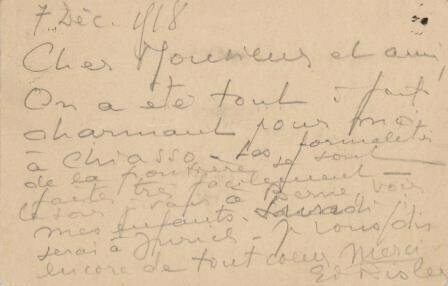 7 Déc. 1918
Cher Monsieur et ami,
On a été tout à fait
charmant pour moi
à Chiasso - Les formalités
de la frontière se sont
faites très facilement -
Ce soir - vais à Berne, voir
mes enfants. Samedi
serai à Zurich - Je vous dis
encore de tout coeur merci
Ed Risler